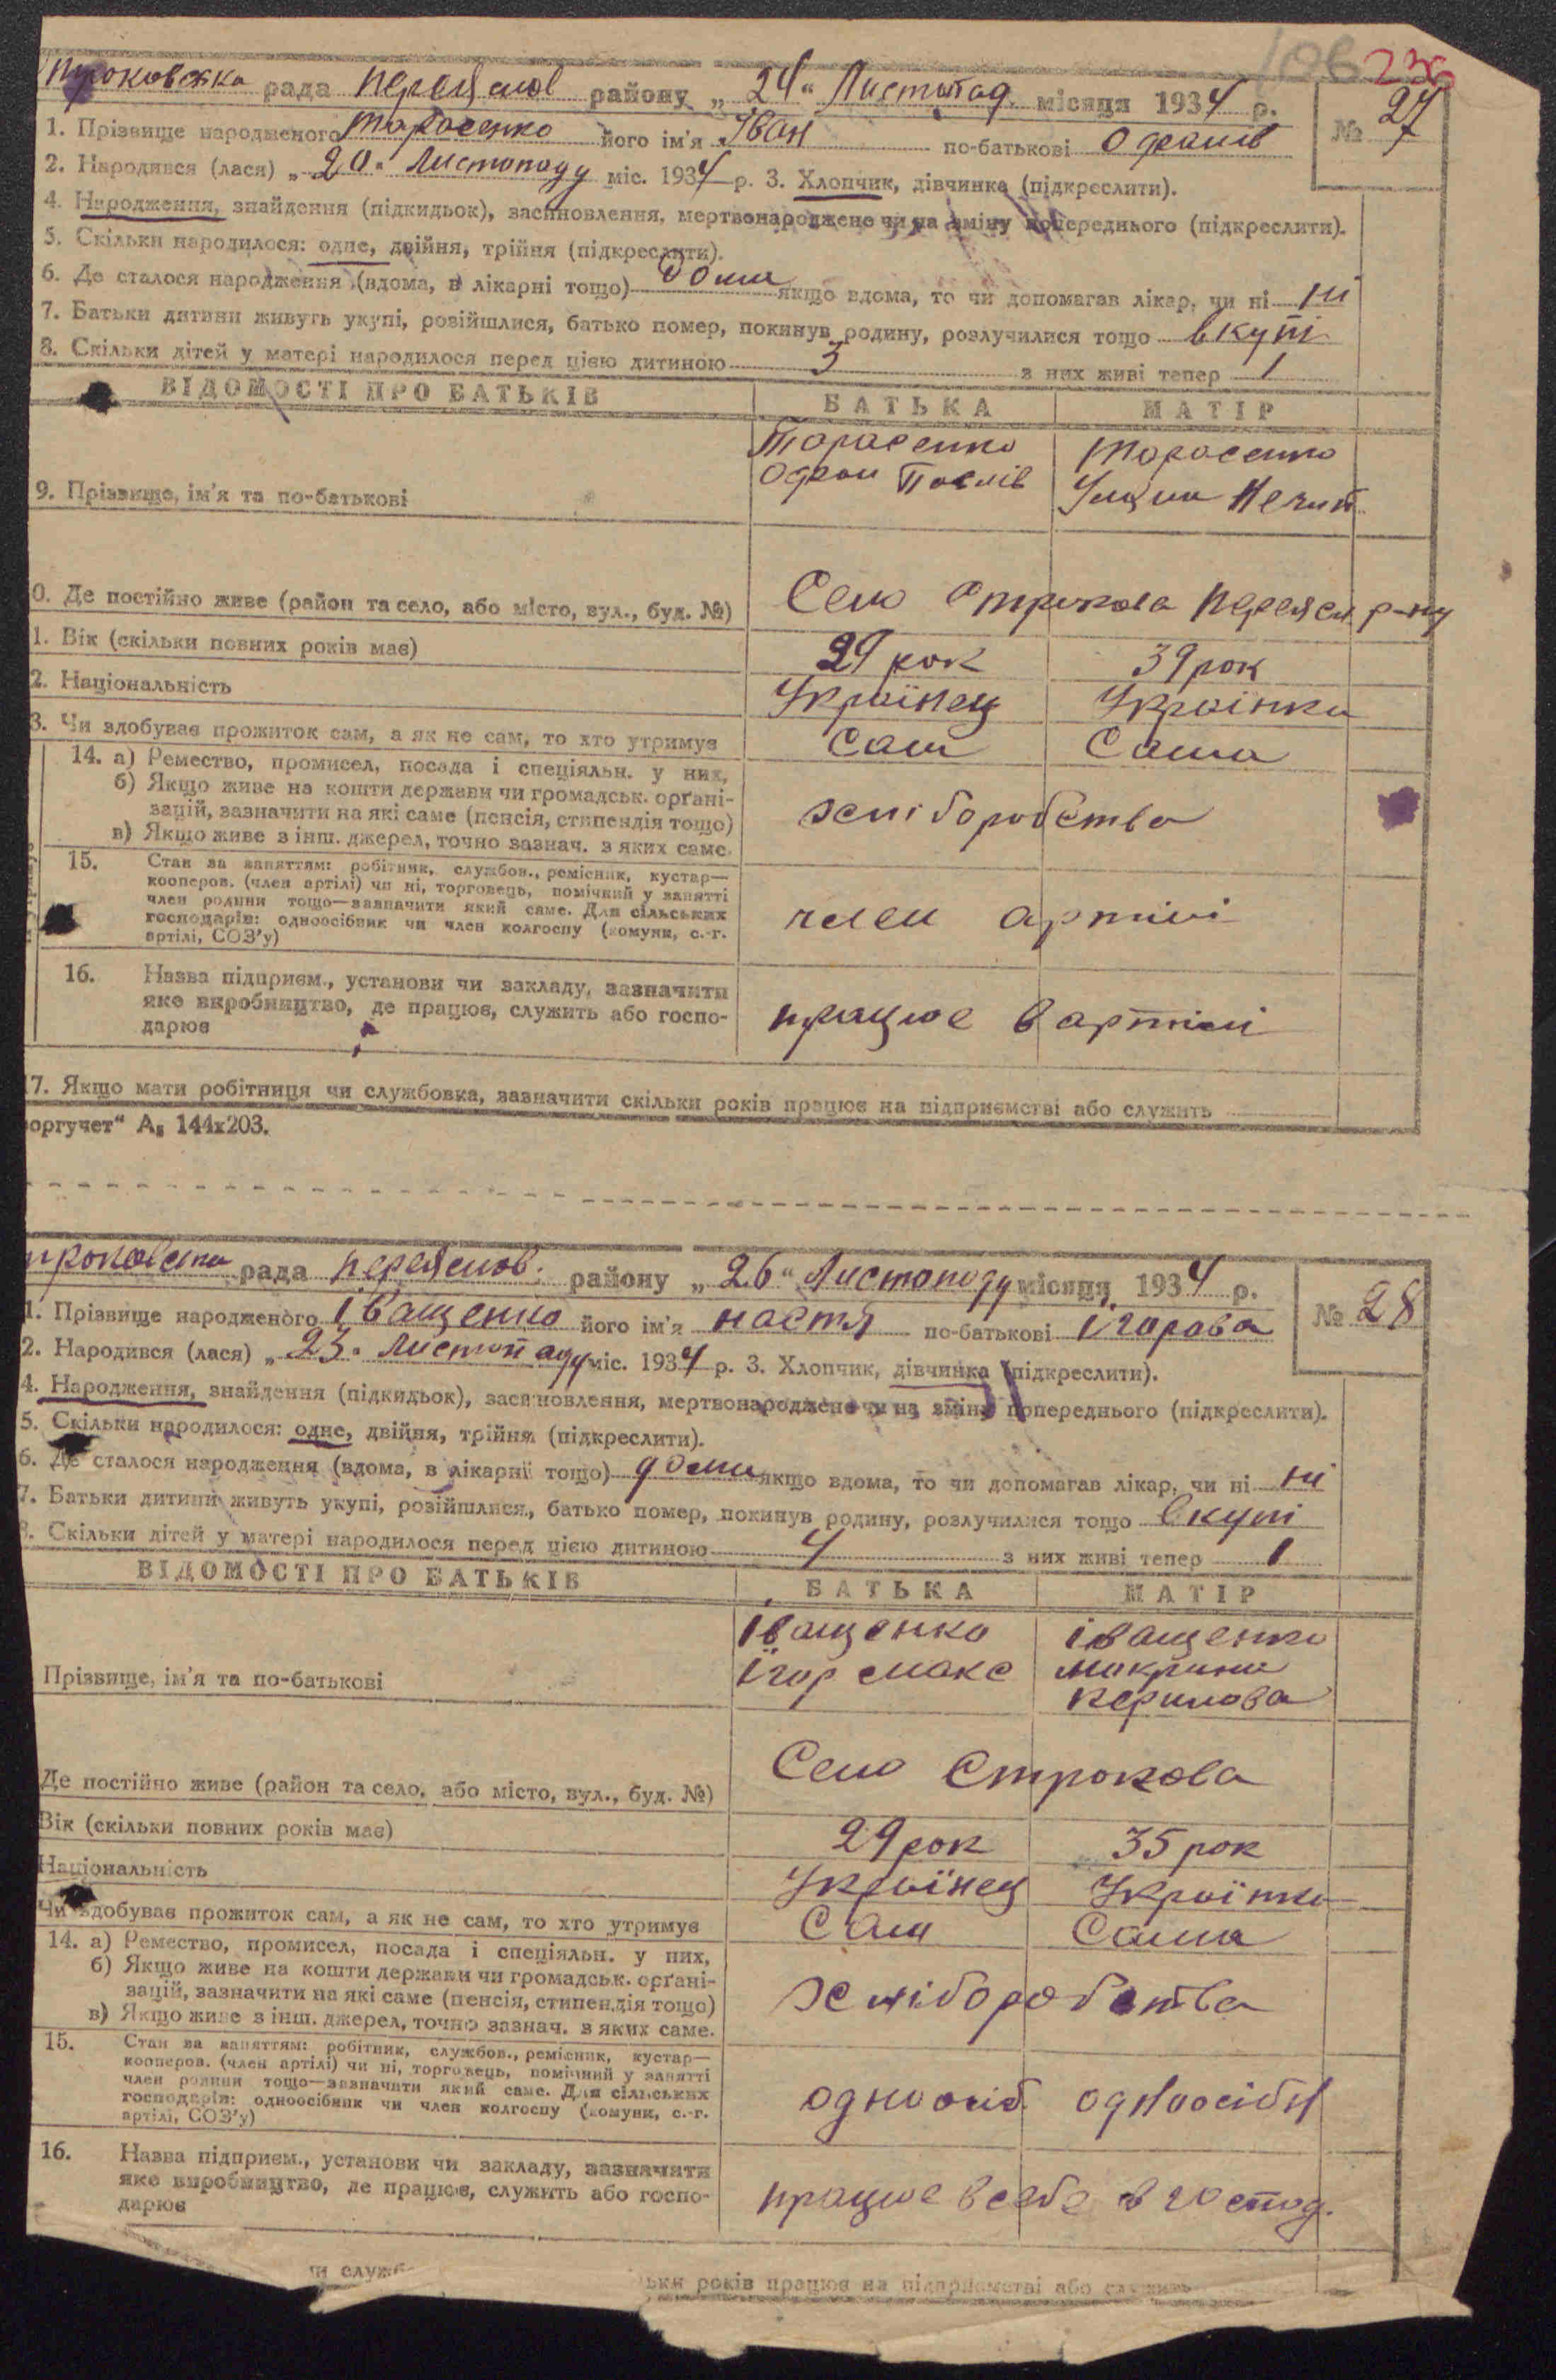 106 236
рада Переяслов району „24“ Листопад місяця 1934 р.
№ 27
1. Прізвище народженого Тарасенко його ім'я Іван по-батькові Одранів
2. Народився (лася) „20“ Листопаду міс. 1934 р. 3. Хлопчик, дівчинка (підкреслити).
4. Народження, знайдення (підкидьок), засиновлення, мертвонароджене чи на зміну попереднього (підкреслити).
5. Скільки народилося: одне, двійня, трійня (підкреслити).
6. Де сталося народження (вдома, в лікарні тощо) дома якщо вдома, то чи допомагав лікар, чи ні ні
7. Батьки дитини живуть укупі, розійшлися, батько помер, покинув родину, розлучилися тощо вкупі
8. Скільки дітей у матері народилося перед цією дитиною 3 з них живі тепер 1
ВІДОМОСТІ ПРО БАТЬКІВ БАТЬКА МАТІР
Тарасенко Тарасенко
9. Прізвище, ім'я та по-батькові Одран Павлів
0. Де постійно живе (район та село, або місто, вул., буд. №) Село Строкова Переясл р-ну
1. Вік (скільки повних років має) 29 рок 39 рок
2. Національність Українец Українка
3. Чи здобував прожиток сам, а як не сам, то хто утримує Сам Сама
14. а) Ремество, промисел, посада і спеціяльн. у них,
б) Якщо живе на кошти держави чи громадськ. орґані-
зацій, зазначити на які саме (пенсія, стипендія тощо) земіборобство
в) Якщо живе з інш. джерел, точно зазнач. з яких саме.
15. Стан за заняттям: робітник, службов., ремісник, кустар—
кооперов. (член артілі) чи ні, торговець, помічний у занятті
член родини тощо—зазначити який саме. Для сільських
господарів: одноосібник чи член колгоспу (комуни, с.-г. член артілі
артілі, СОЗ'у)
16. Назва підприєм., установи чи закладу, зазначити
яке виробництво, де працює, служить або госпо- працює в артілі
дарює
17. Якщо мати робітниця чи службовка, зазначити скільки років працює на підприємстві або служить
оргучет“ А₅ 144х203.
рада Переяслов. району „26“ Листопаду місяця 1934 р.
№ 28
1. Прізвище народженого Іващенко його ім'я Настя по-батькові Ігорова
2. Народився (лася) „23“ Листопаду міс. 1934 р. 3. Хлопчик, дівчинка (підкреслити).
4. Народження, знайдення (підкидьок), засиновлення, мертвонароджене чи на зміну попереднього (підкреслити).
5. Скільки народилося: одне, двійня, трійня (підкреслити).
6. Де сталося народження (вдома, в лікарні тощо) дома якщо вдома, то чи допомагав лікар, чи ні ні
7. Батьки дитини живуть укупі, розійшлися, батько помер, покинув родину, розлучилися тощо вкупі
8. Скільки дітей у матері народилося перед цією дитиною 4 з них живі тепер 1
ВІДОМОСТІ ПРО БАТЬКІВ БАТЬКА МАТІР
Іващенко Іващенко
Прізвище, ім'я та по-батькові Ігор Макс Макрина
Керилова
Де постійно живе (район та село, або місто, вул., буд. №) Село Строкова
Вік (скільки повних років має) 29 рок 35 рок
Національність Українец Українка
Чи здобував прожиток сам, а як не сам, то хто утримує Сам Сама
14. а) Ремество, промисел, посада і спеціяльн. у них,
б) Якщо живе на кошти держави чи громадськ. орґані-
зацій, зазначити на які саме (пенсія, стипендія тощо) земіборобства
в) Якщо живе з інш. джерел, точно зазнач. з яких саме.
15. Стан за заняттям: робітник, службов., ремісник, кустар—
кооперов. (член артілі) чи ні, торговець, помічний у занятті
член родини тощо—зазначити який саме. Для сільських
господарів: одноосібник чи член колгоспу (комуни, с.-г. одноосіб одноосібн
артілі, СОЗ'у)
16. Назва підприєм., установи чи закладу, зазначити
яке виробництво, де працює, служить або госпо- працює в себе в господ.
дарює
чи служб ьки років працює на підприємстві або служить